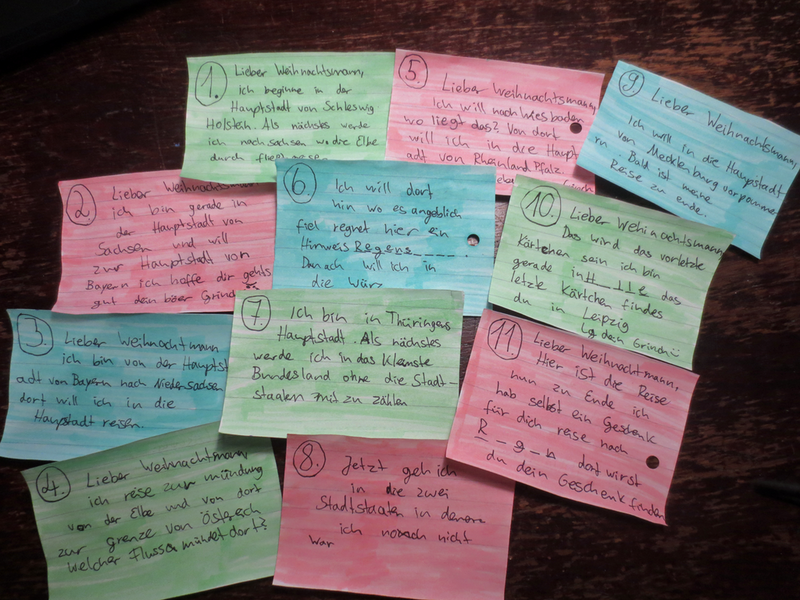 1.
Lieber Weihnachtsmann,
ich beginne in der
Hauptstadt von Schleswig
Holstein. Als nächstes werde
ich nach sachsen wo die Elbe
durch
2
Lieber Weihnachtsmann
ich bin gerade in
der Hauptstadt von
Sachsen und will
zur Hauptstadt von
Bayern ich hoffe dir gehts
gut dein böser Grinch
3
Lieber Weihnachtmann
ich bin von der Hauptst
adt von Bayern nach Niedersachsen
dort will ich in die
Hauptstadt reisen.
4.
Lieber Weihnachtsmann,
ich reise zur mündung
von der Elbe und von dort
zur grenze von Östreich
welcher Flussen mündet dort?
5.
Lieber Weihnachtsmann,
ich will nach Wiesbaden
wo liegt das? Von dort
will ich in die Haupt
adt von Rheinland Pfalz.
6.
Ich will dort
hin wo es angeblich
fiel regnet hier ein
Hinweis Regens_____.
Danach will ich in
die
7.
Ich bin in Thüringens
Hauptstadt. Als nächstes
werde ich in das Kleinste
Bundesland ohne die Stadt-
staaten mit zu zählen
8.
Jetzt geh ich
in die zwei
Stadtstaaten in denen
ich noch nicht
war
9
Lieber Weihnachtsmann,
Ich will in die Haupstadt
von Mecklenburg vorpommer
n. Bald ist meine
Reise zu ende.
10.
Lieber Wehinachtsmann
Das wird das vorletzte
Kärtchen sein ich bin
gerade in H_lle das
letzte Kärtchen findes
du in Leipzig
lg dein Grinch
11.
Lieber Weihnachtmann,
Hier ist die Reise
nun zu Ende ich
hab selbst ein Gesdenk
für dich reise nach
R_g_n dat wirst
du dein Geschenk finden